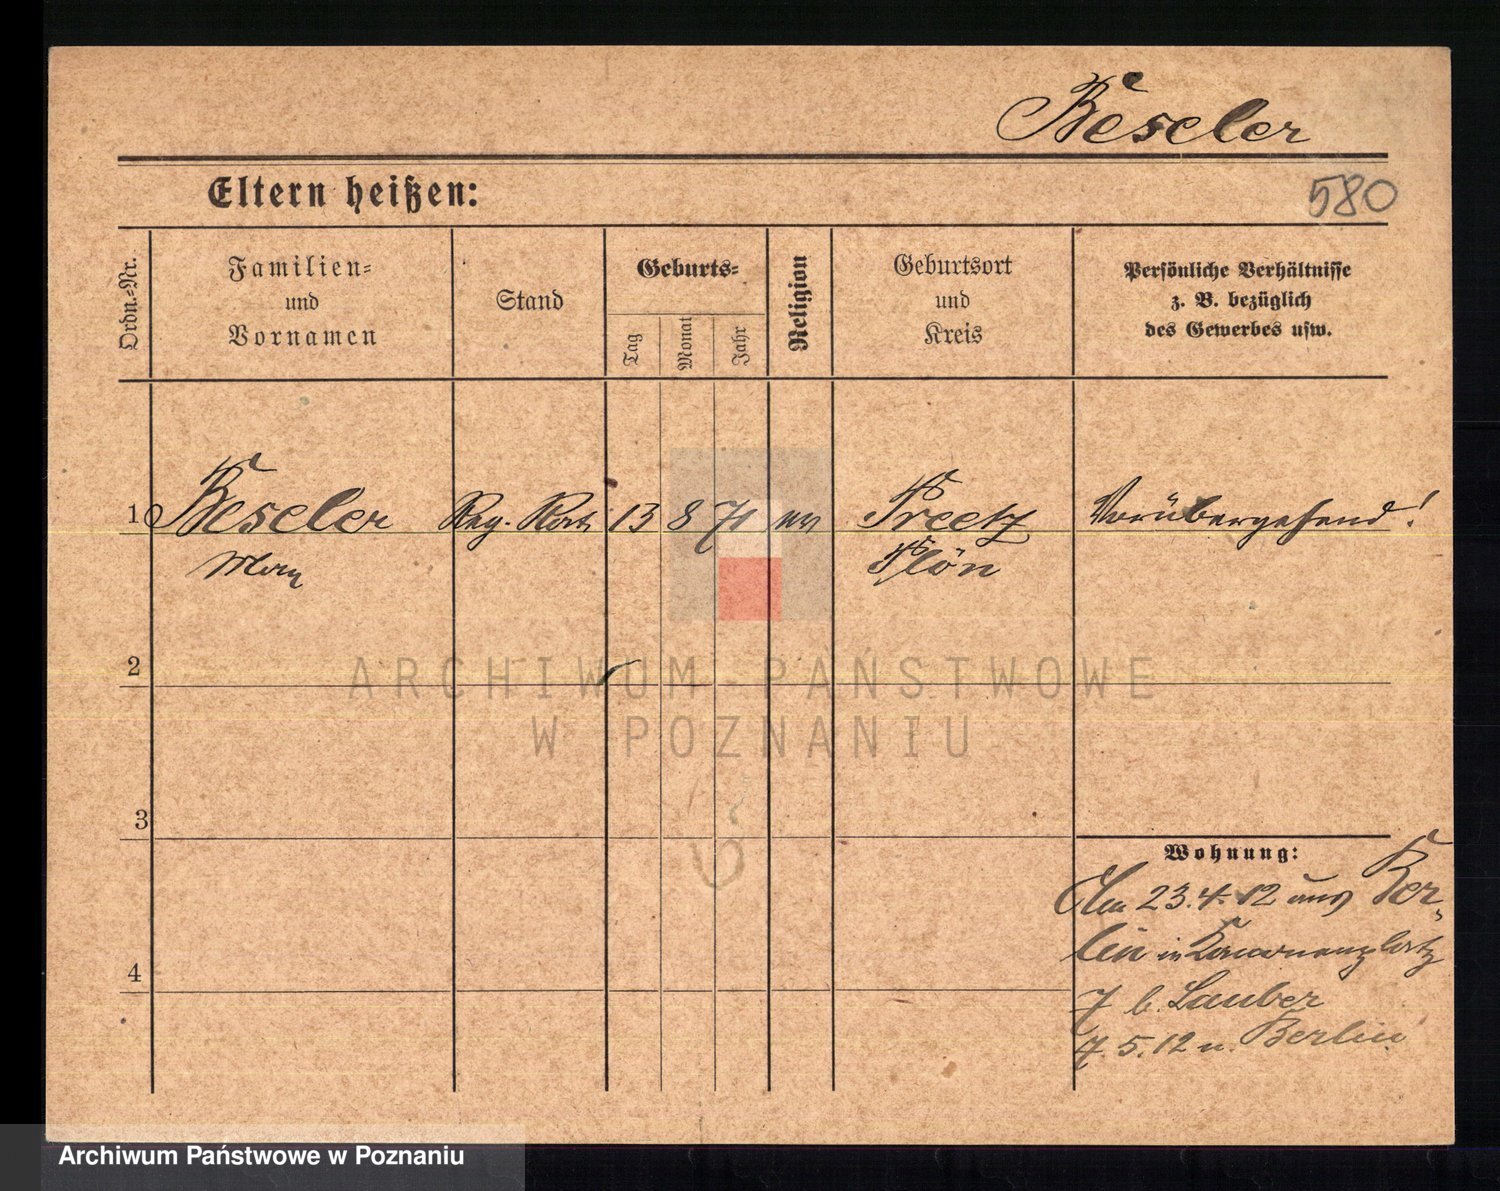 Beseler
Eltern heißen:
580
Ordn.-Nr.
Familien-
und
Vornamen
Stand
Geburts-
Tag
Monat
Jahr
Religion
Geburtsort
und
Kreis
Persönliche Verhältnisse
z. B. bezüglich
des Gewerbes usw.
1 Beseler Reg. Rat 13 8 71 Preetz Vorübergehend!
Max Plön
2
ARCHIWUM PAŃSTWOWE
W POZNANIU
3
Wohnung:
4
23.4.12 aus Ber-
lin in Königsplatz
7 b. Lauber
7.5.12 n. Berlin
Archiwum Państwowe w Poznaniu